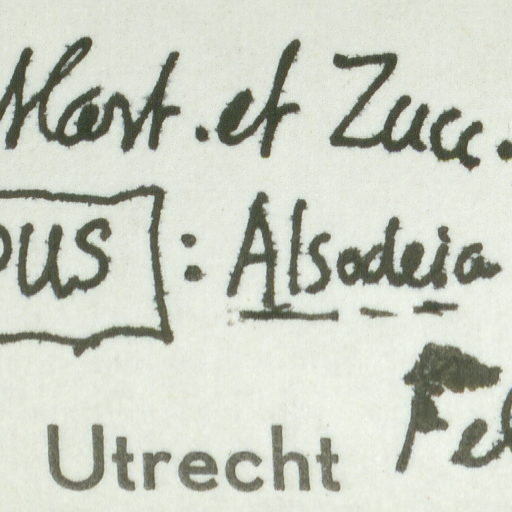 Mart. et Zucc.
PUS : Alsodeia
Fel
Utrecht